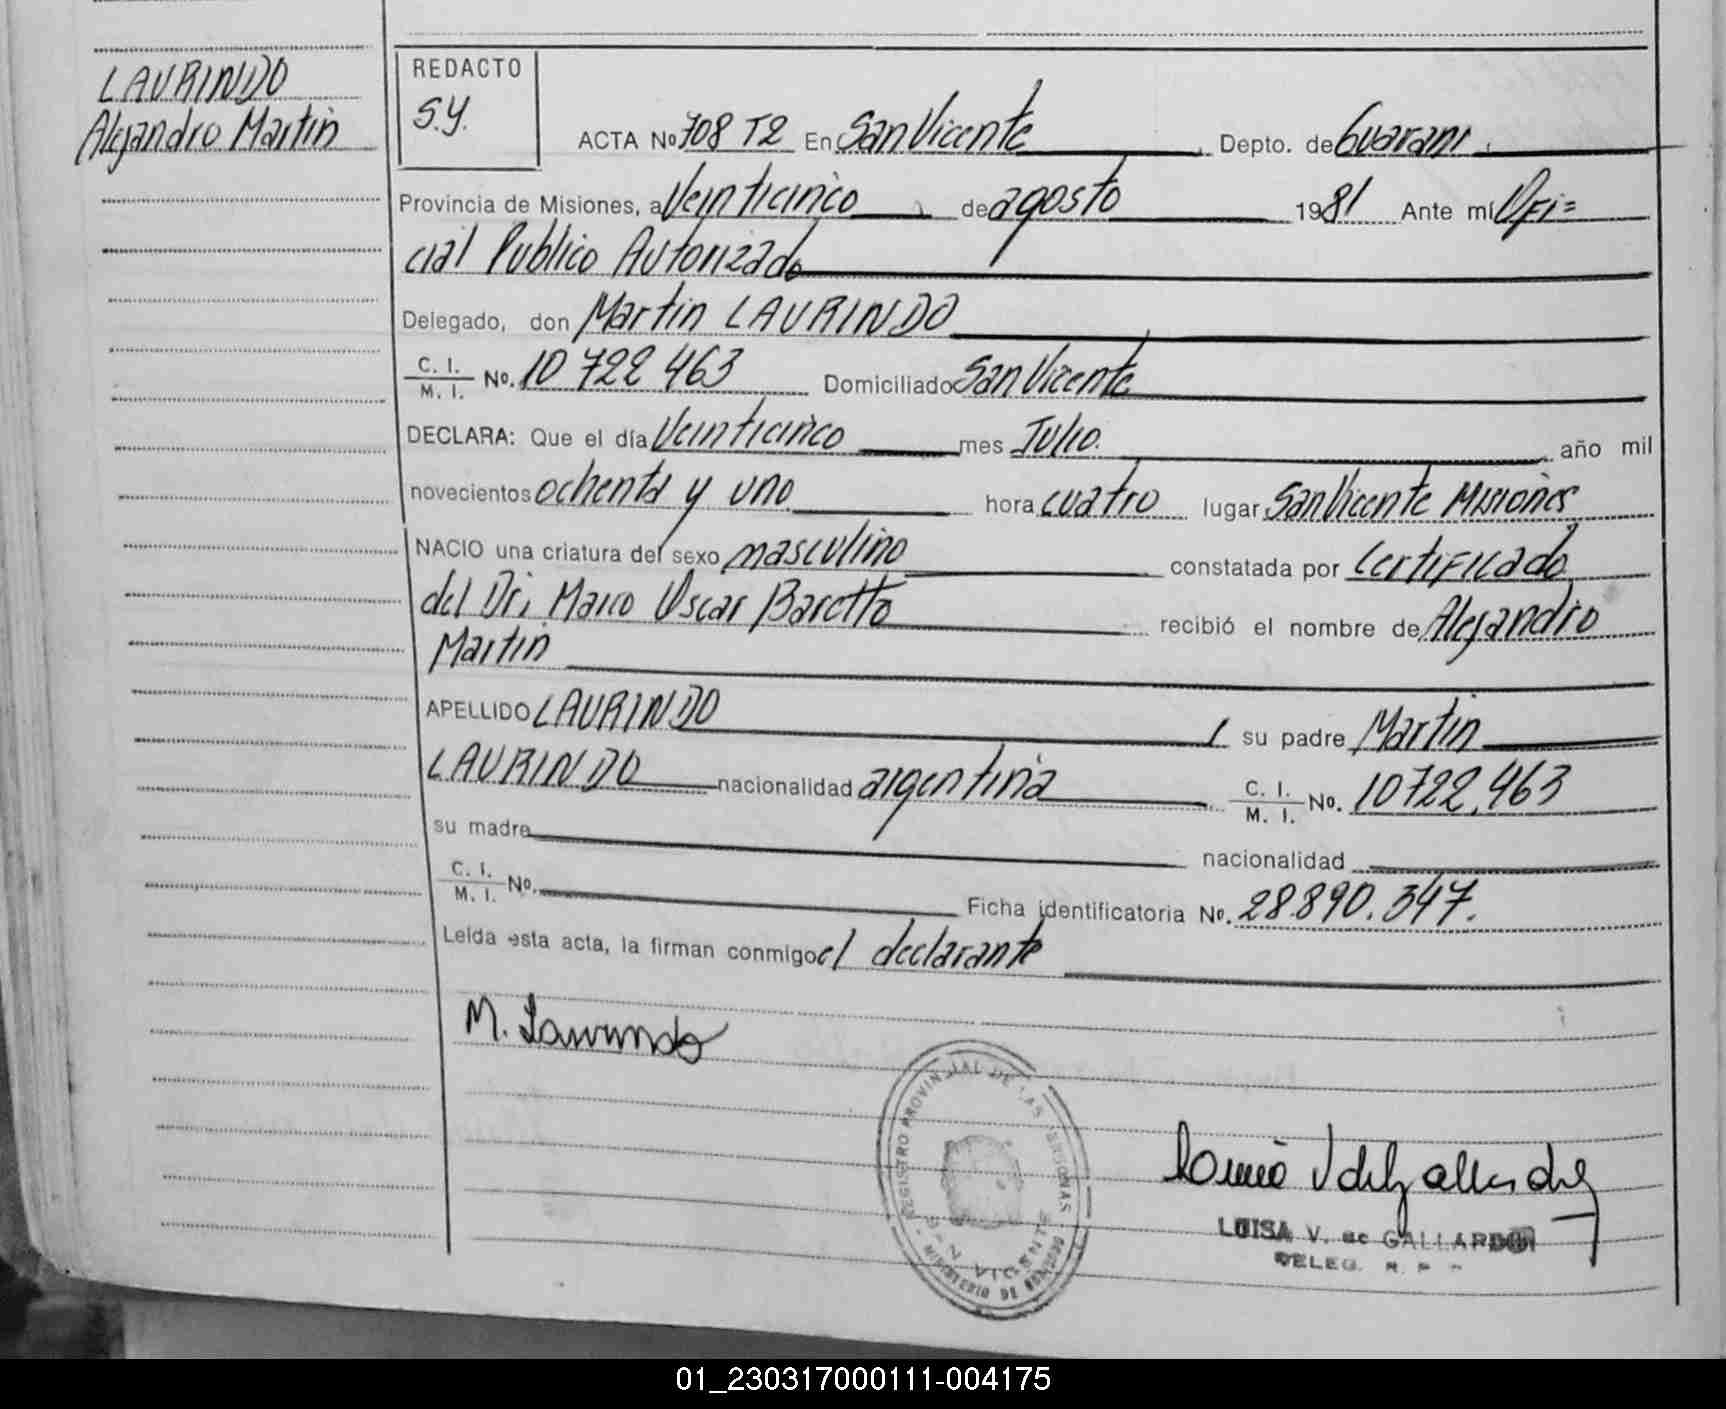 LAURINDO
Alejandro Martin
REDACTO
S.Y.
ACTA No 708 T2 En San Vicente Depto. de Guarani
Provincia de Misiones, a Veinticinco de agosto 1981 Ante mí Ofi=
cial Publico Autorizado
Delegado, don Martin LAURINDO
C. I. / M. I. No. 10 722 463 Domiciliado San Vicente
DECLARA: Que el día Veinticinco mes Julio. año mil
novecientos ochenta y uno hora cuatro lugar San Vicente Misiones
NACIO una criatura del sexo masculino constatada por Certificado
del Dr. Marco Oscar Baretto recibió el nombre de Alejandro
Martin
APELLIDO LAURINDO su padre Martin
LAURINDO nacionalidad argentina C. I. / M. I. No. 10722.463
su madre nacionalidad
C. I. / M. I. No. Ficha identificatoria No. 28.890.347.
Leida esta acta, la firman conmigo el declarante
M. Laurindo
REGISTRO PROVINCIAL DE LAS PERSONAS
SAN VICENTE
MINISTERIO DE GOBIERNO
LUISA V. de GALLARDO
DELEG. R. P.
01_230317000111-004175